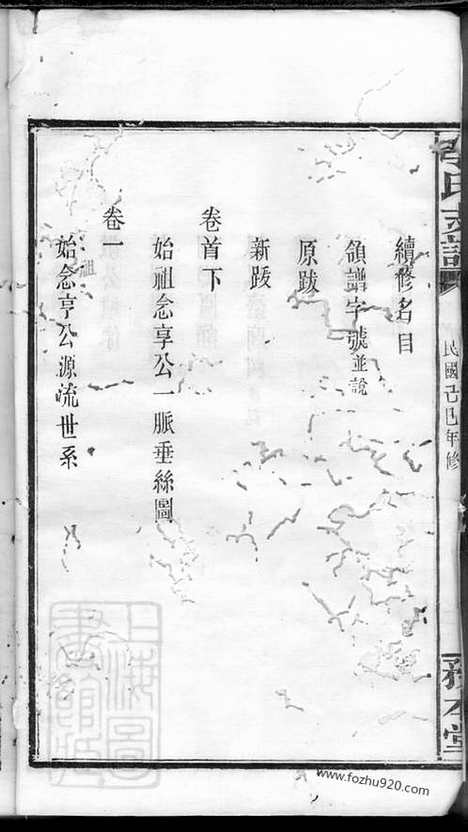 氏支譜
民國己巳年修
本堂
續修名目
領譜字號並說
原跋
新跋
卷首下
始祖念享公一脈垂絲圖
卷一
始念亨公源流世系
上海圖書館藏
www.fozhu920.com